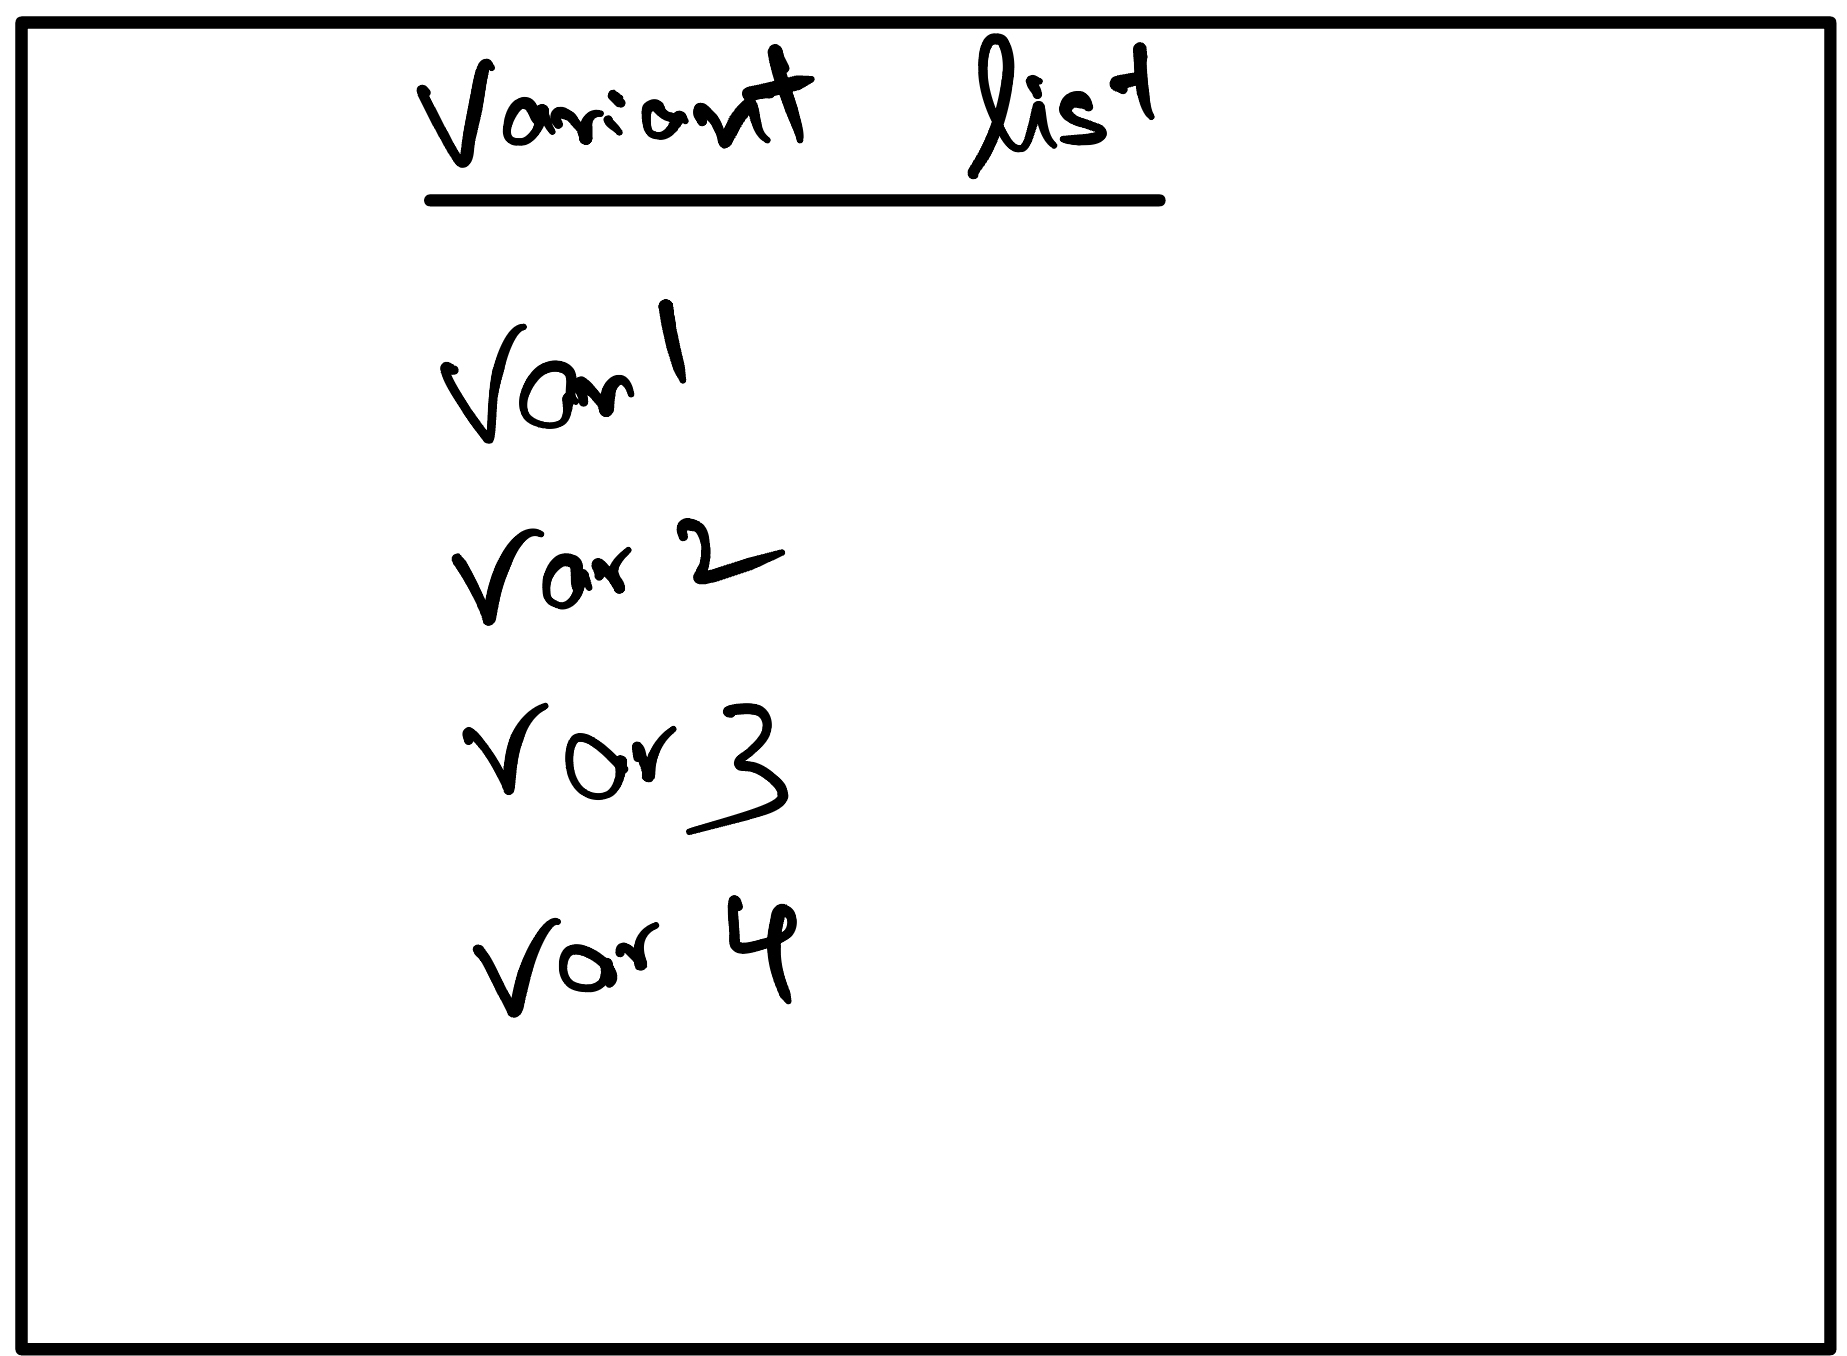 Variant list
Var 1
Var 2
Var 3
Var 4